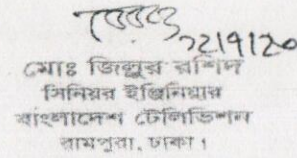 মোঃ জিল্লুর রশিদ
সিনিয়র ইঞ্জিনিয়ার
বাংলাদেশ টেলিভিশন
রামপুরা, ঢাকা।